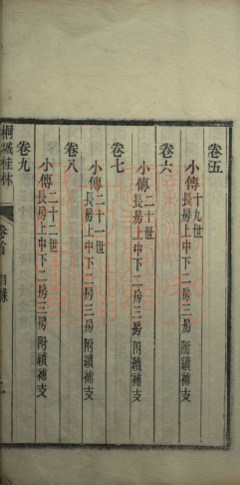 卷五
小傳十九世
長房上中下二房三房 附續補支
卷六
小傳二十世
長房上中下二房三房 附續補支
卷七
小傳二十一世
長房上中下二房三房 附續補支
卷八
小傳二十二世
長房上中下二房三房 附續補支
卷九
桐城桂林
卷首 目錄